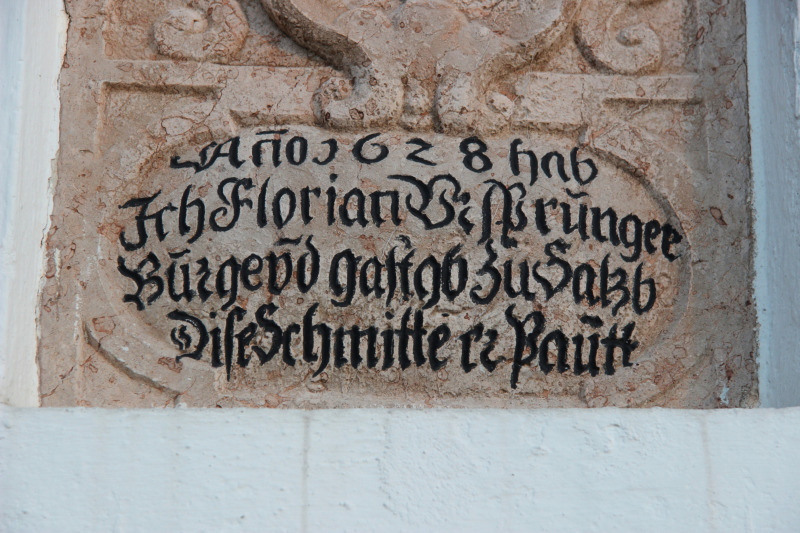 Año 1628 hab
Ich Florian Vrsprŭnger
Bŭrger v̄d gastgb zu Salzb
Dise Schmitte erPaŭtt